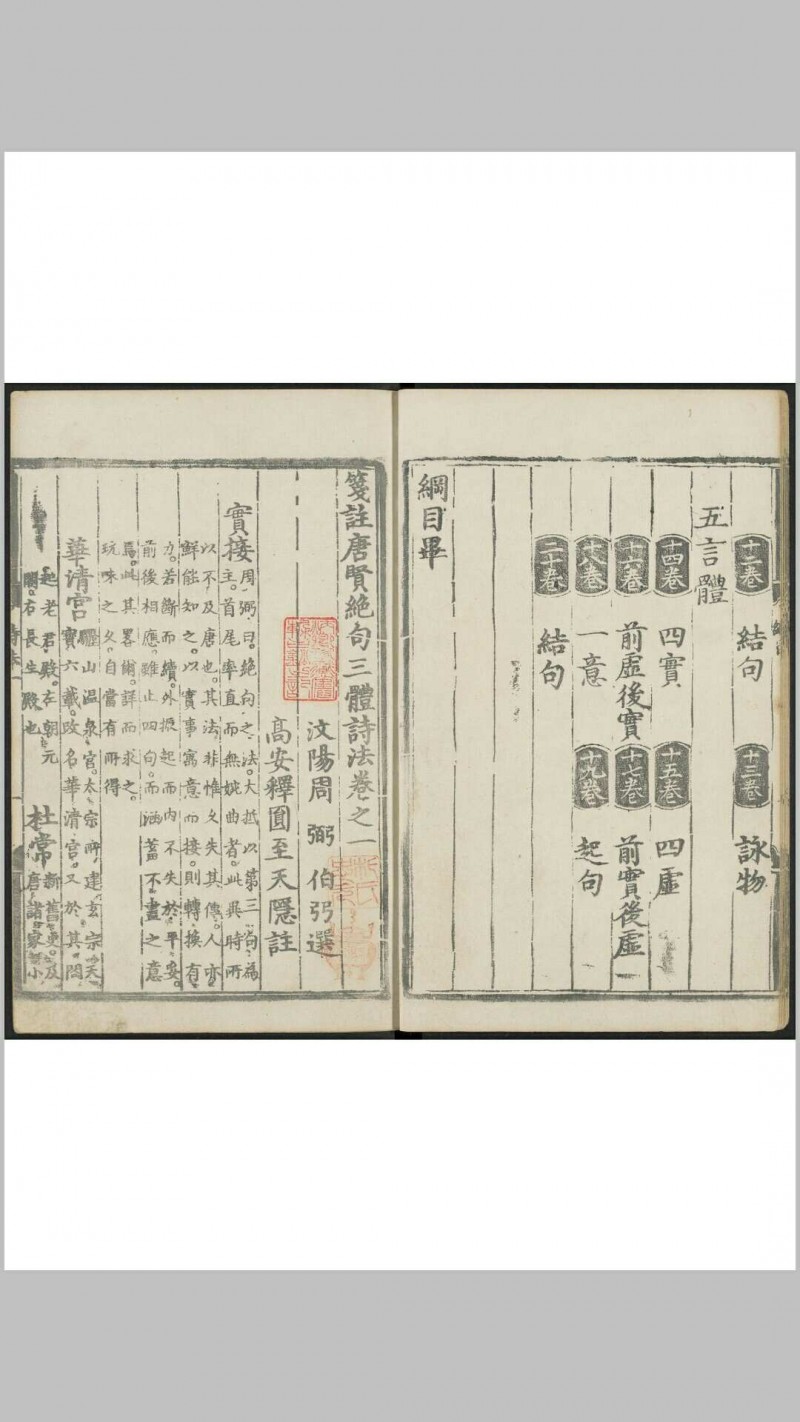 十二卷 結句 十三卷 詠物
五言體
十四卷 四實 十五卷 四虛
十六卷 前虛後實 十七卷 前實後虛
十八卷 一意 十九卷 起句
二十卷 結句
綱目畢
箋註唐賢絕句三體詩法卷之一
汶陽周 弼 伯弜選
高安釋圓至天隱註
實接
周弼曰。絕句之法。大抵以第三句為
主。首尾率直而無婉曲者。此異時所
以不及唐也。其法非惟久失其傳。人亦
鮮能知之。以實事寓意而接。則轉換有
力。若斷而續。外振起而內不失於平妥。
前後相應。雖止四句。而涵蓄不盡之意
焉。此其畧爾。詳而求之。
玩味之久。自當有所得
華清宮
驪山温泉宮。太宗所建。玄宗天
寶六載。改名華清宮。又於其間
起老君殿。左朝元
閣。右長生殿也
杜常
新舊史。及
唐諸家小